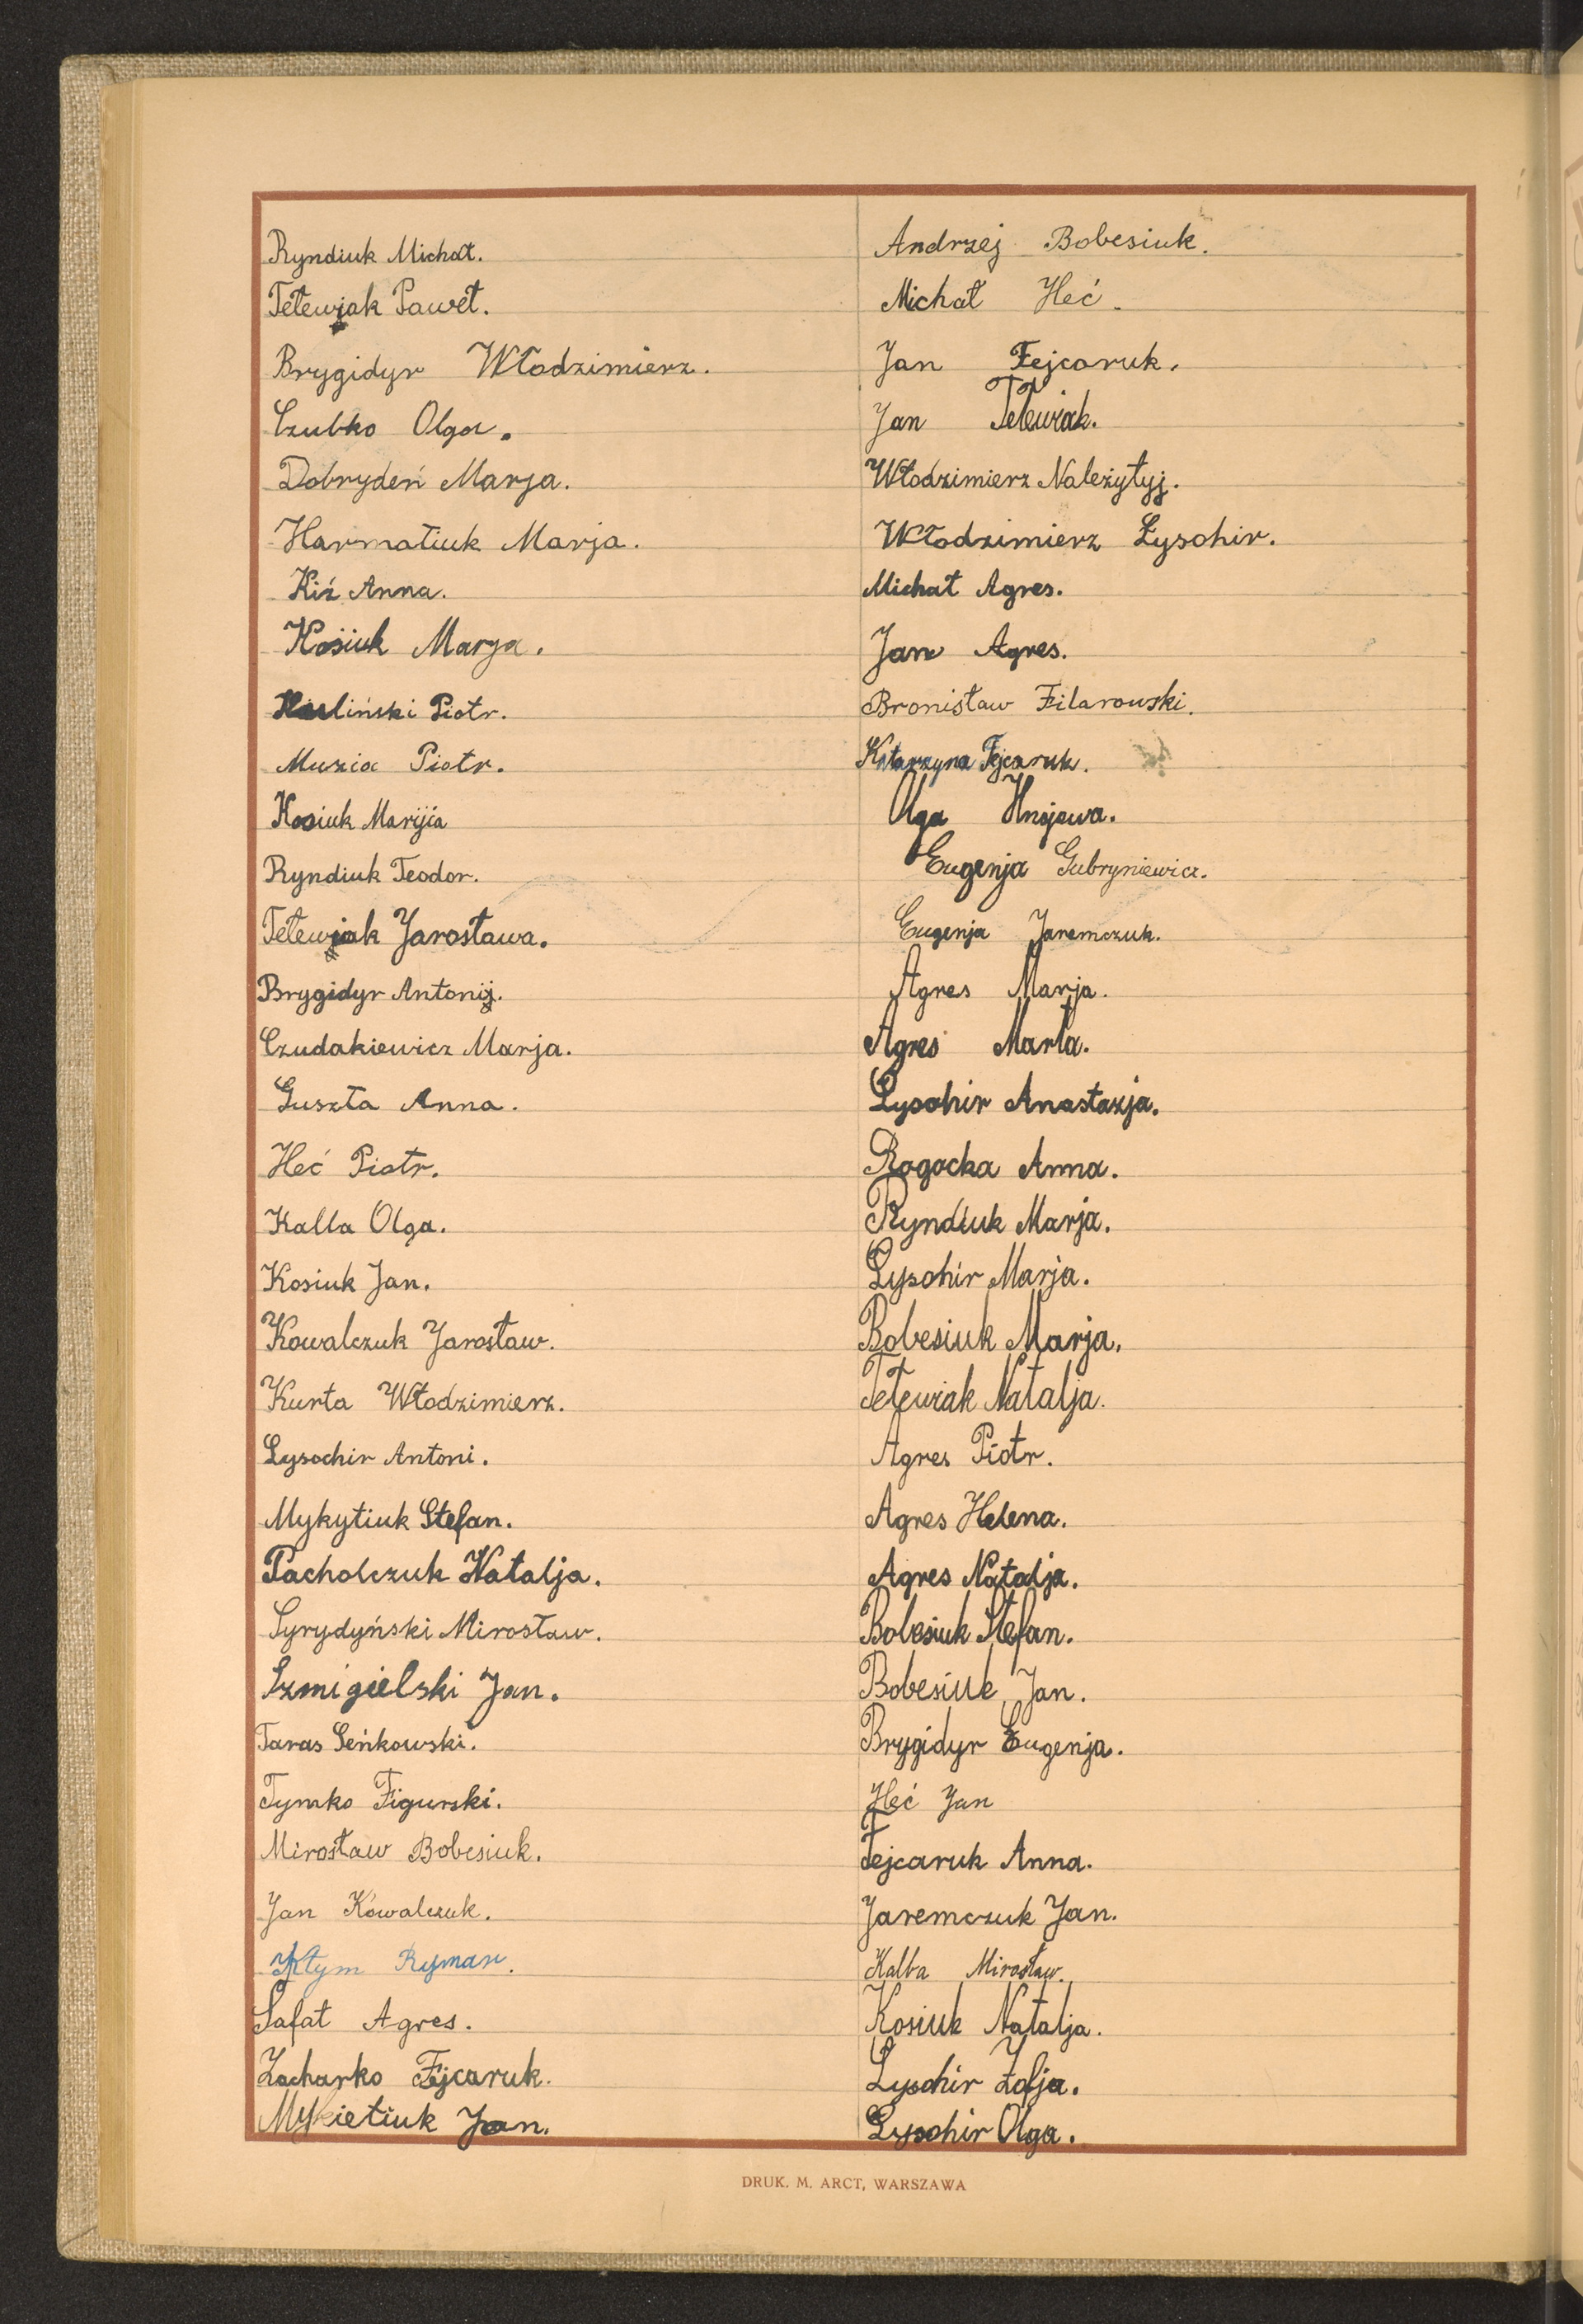 Ryndiuk Michał.
Tetewjak Paweł.
Brygidyr Włodzimierz.
Czubko Olga.
Dobrydeń Marja.
Harmatiuk Marja.
Kiź Anna.
Kosiuk Marja.
Piotr.
Muzia Piotr.
Kosiuk Marijia
Ryndiuk Teodor.
Tetewjak Jarosława.
Brygidyr Antonij.
Czudakiewicz Marja.
Guszta Anna.
Heć Piotr.
Kalba Olga.
Kosiuk Jan.
Kowalczuk Jarosław.
Kurta Włodzimierz.
Łysochir Antoni.
Mykytiuk Stefan.
Pacholczuk Natalja.
Syrydyński Mirosław.
Szmigielski Jan.
Taras Seńkowski.
Tymko Figurski.
Mirosław Bobesiuk.
Jan Kowalczuk.
Kłym Ryman.
Safat Agres.
Zacharko Fejcaruk.
Mykietiuk Jan.
Andrzej Bobesiuk.
Michał Heć.
Jan Fejcaruk.
Jan Tetewiak.
Włodzimierz Należytyj.
Włodzimierz Łysohir.
Michał Agres.
Jan Agres.
Bronisław Filarowski.
Katarzyna Fejcaruk.
Olga Hnojewa.
Eugenja Gubryniewicz.
Eugenja Jaremczuk.
Agres Marja.
Agres Marta.
Łysohir Anastazja.
Rogocka Anna.
Ryndiuk Marja.
Łysohir Marja.
Bobesiuk Marja.
Tetewiak Natalja.
Agres Piotr.
Agres Helena.
Agres Natalja.
Bobesiuk Stefan.
Bobesiuk Jan.
Brygidyr Eugenja.
Heć Jan
Fejcaruk Anna.
Jaremczuk Jan.
Kalba Mirosław.
Kosiuk Natalja.
Łysohir Zofja.
Łysohir Olga.
DRUK. M. ARCT, WARSZAWA